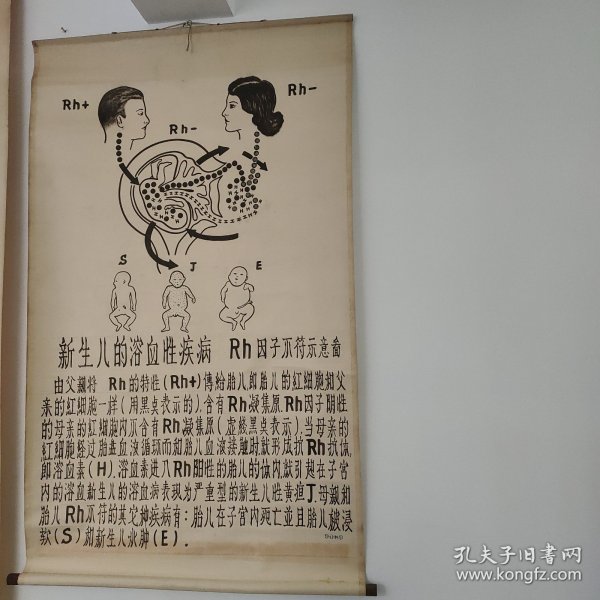 Rh+
Rh-
Rh-
S
J
E
新生儿的溶血性疾病 Rh因子不符示意畵
由父親将 Rh的特性(Rh+)傳給胎儿即胎儿的紅細胞和父
亲的紅細胞一样(用黑点表示的).含有Rh凝集原.Rh因子阴性
的母亲的紅細胞内不含有Rh凝集原(虚楼黑点表示).当母亲的
紅細胞经过胎盘血液循環而和胎儿血液接触时就形成抗Rh抗体,
即溶血素(H).溶血素进入Rh阳性的胎儿的体内,就引起在子宫
内的溶血新生儿的溶血病表现为严重型的新生儿性黄疸J.母親和
胎儿Rh不符的其它种疾病有:胎儿在子宫内死亡並且胎儿被浸
软(S)和新生儿水肿(E).
孔夫子旧書网
www.kongfz.com